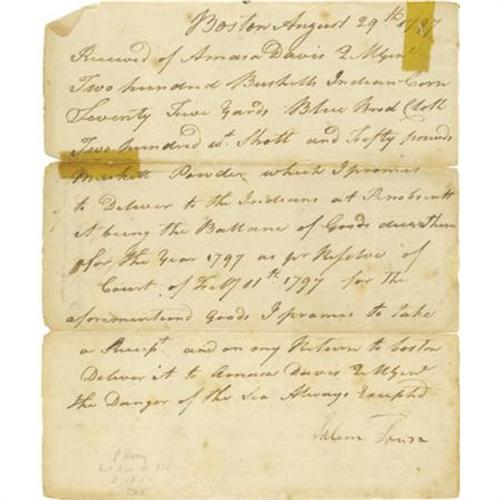 Boston August 29th 1797
Received of Amasa Davis Q M Genl
Two hundred Bushells Indian Corn
Seventy Five Yards Blue Brod Cloth
Two hundred wt. Shott and Fifty pounds
Muskett Powder which I promis
to Deliver to the Indians at Penobscutt
it being the Ballanc of Goods due them
for the Year 1797 as pr Resolve of
Court of Feby 11th 1797 for the
aforementiond Goods I promis to take
a Recept. and on my Return to boston
Deliver it to Amasa Davis Q M Genl
the Danger of the Sea Always Exceptd
Salem Town